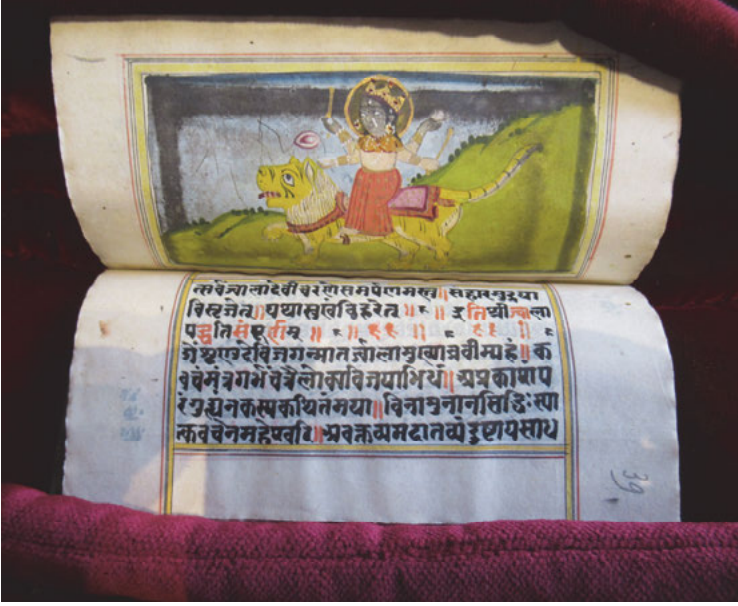 त्सर्वज्वालादेवीचरणेसमर्पणमस्तु॥संहारमुद्रया
विसृजेत्॥यथासुखंविहरेत्॥ ॥इतिश्रीज्वाला
पद्धतिसंपूर्णाम्॥ ॥११॥ ११॥
शृणुदेविजगन्मातर्ज्वालामुख्याब्रवीम्यहं॥क
वचंमंत्रगर्भंचत्रैलोक्यविजयाभिधं॥अप्रकाश्यंप
रंगुह्यंनकस्यकथितंमया॥विनामुनानसिद्धिःस्या
त्कवचेनमहेश्वरि॥अवक्तव्यमदातव्यंदुष्टायसाध
39